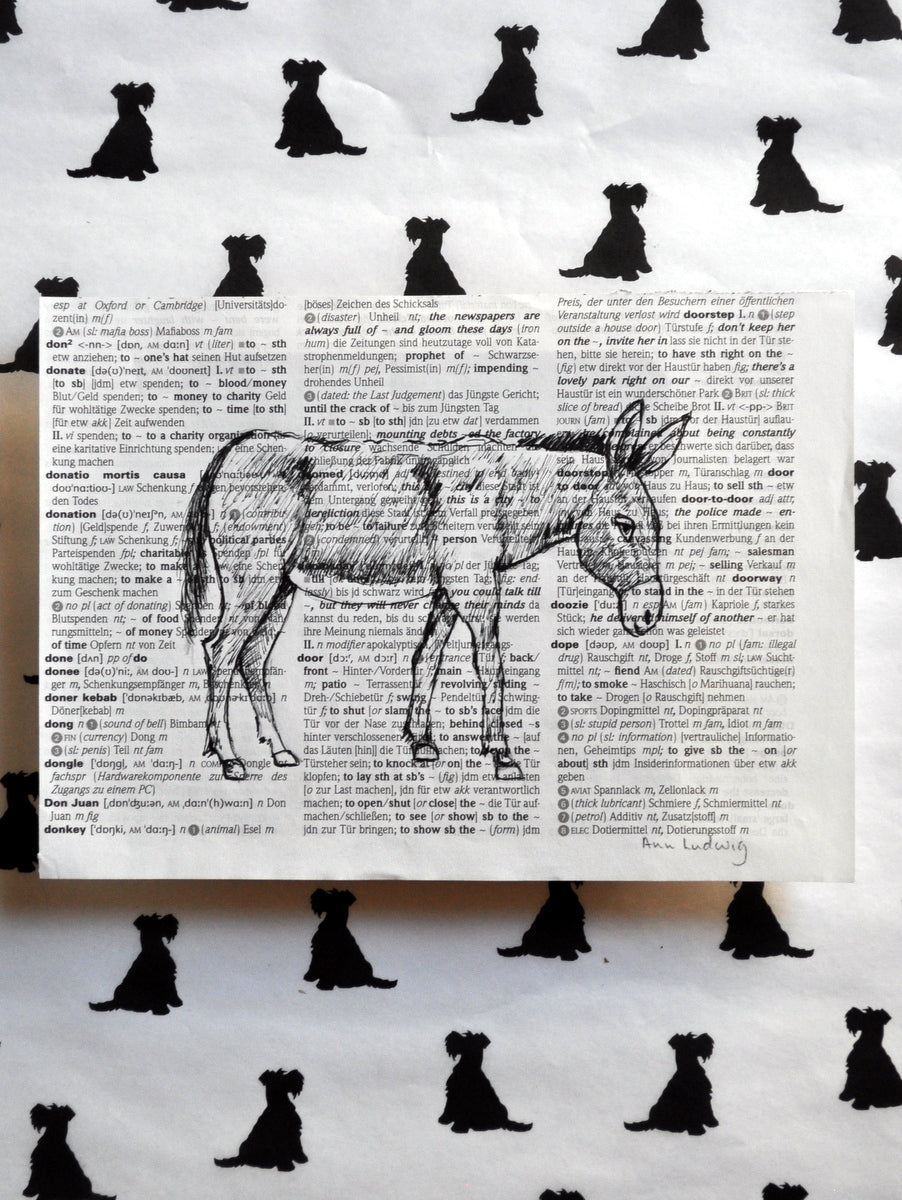 esp at Oxford or Cambridge) |Universitäts|do-
zent(in) m(f)
❷ AM (sl: mafia boss) Mafiaboss m fam
don² <-nn-> [dɒn, AM dɑ:n] vt (liter) ■to ~ sth
etw anziehen; to ~ one's hat seinen Hut aufsetzen
donate [də(ʊ)'neɪt, AM 'doʊneɪt] I. vt ■to ~ sth
[to sb] |jdm| etw spenden; to ~ blood/money
Blut/Geld spenden; to ~ money to charity Geld
für wohltätige Zwecke spenden; to ~ time |to sth|
|für etw akk| Zeit aufwenden
II. vi spenden; to ~ to a charity organization
eine karitative Einrichtung spenden; eine Schen-
kung machen
donatio mortis causa
LAW Schenkung f
den Todes
donation [də(ʊ)'neɪʃᵊn, ❶ (contribu-
tion) |Geld|spende f, Zuwend (endowment)
Stiftung f; LAW Schenkung f; political parties
Parteispenden fpl; charitable spenden fpl für
wohltätige Zwecke; to make eine Schen-
kung machen; to make a sth to sb jdm etw
zum Geschenk machen
❷ no pl (act of donating) Spenden nt; ~ of blood
Blutspenden nt; ~ of food
rungsmitteln; ~ of money Spenden von Geld;
of time Opfern nt von Zeit
done [dʌn] pp of do
donee [dəʊ'ni:, AM doʊ-] n LAW
ger m, Schenkungsempfänger m,
doner kebab n
Döner|kebab| m
dong n ❶ (sound of bell) Bimbam nt
❷ FIN (currency) Dong m
❸ (sl: penis) Teil nt fam
dongle ['dɒŋgl, AM 'dɑ:ŋ-] n COMPUT Dongle m
fachspr (Hardwarekomponente zur Sperre des
Zugangs zu einem PC)
Don Juan [ˌdɒn'dʒu:ən, AM ˌdɑ:n'(h)wɑ:n] n Don
Juan m fig
donkey ['dɒŋki, AM 'dɑ:ŋ-] n ❶ (animal) Esel m
|böses| Zeichen des Schicksals
❷ (disaster) Unheil nt; the newspapers are
always full of ~ and gloom these days (iron
hum) die Zeitungen sind heutzutage voll von Kata-
strophenmeldungen; prophet of ~ Schwarzse-
her(in) m(f) pej, Pessimist(in) m(f); impending ~
drohendes Unheil
❸ (dated: the Last Judgement) das Jüngste Gericht;
until the crack of ~ bis zum Jüngsten Tag
II. vt ■to ~ sb |to sth| jdn |zu etw dat| verdammen
|o verurteilen|; mounting debts ~ed the factory
to closure wachsende Schulden machten die
Schließung der Fabrik unumgänglich
doomed
verdammt, verloren, this is a city ~ to
dem Untergang geweiht
dereliction diese Stadt ist dem Verfall preisgegeben
to be ~ to failure zum Scheitern verurteilt sein
❷ (condemned) verurteilt; ~ person Verurteilte
no pl der Jüngste Tag;
till bis zum Jüngsten Tag; (fig: end-
lessly) bis jd schwarz wird; you could talk till
~, but they will never change their minds da
kannst du reden, bis du schwarz werden
ihre Meinung niemals ändern
II. n modifier apokalyptisch,
door [dɔ:ʳ, AM dɔ:r] n ❶ (entrance) Tür f; back/
front ~ Hinter-/Vordertür f; main ~
m; patio ~ Terrassentür revolving/sliding ~
Dreh-/Schiebetür f; swing ~ Pendeltür Schwing-
tür f; to shut |or slam| the ~ in sb's face jdm die
Tür vor der Nase zuschlagen; behind closed ~s
hinter verschlossenen Türen; to answer the ~ |auf
das Läuten |hin|| die Tür aufmachen; to the ~
Türsteher sein; to knock at |or on| the ~
klopfen; to lay sth at sb's ~ (fig) jdm etw anlasten
|o zur Last machen|, jdn für etw akk verantwortlich
machen; to open/shut |or close| the ~ die Tür auf-
machen/schließen; to see |or show| sb to the ~
jdn zur Tür bringen; to show sb the ~ (form) jdm
Preis, der unter den Besuchern einer öffentlichen
Veranstaltung verlost wird doorstep I. n ❶ (step
outside a house door) Türstufe f; don't keep her
on the ~, invite her in lass sie nicht in der Tür ste-
hen, bitte sie herein; to have sth right on the ~
(fig) etw direkt vor der Haustür haben fig; there's a
lovely park right on our ~ direkt vor unserer
Haustür ist ein wunderschöner Park ❷ BRIT (sl: thick
slice of bread) dicke Scheibe Brot II. vt <-pp-> BRIT
JOURN (fam) ■to ~ sb jdm |vor der Haustür| auflau-
ern; complained about being constantly
beschwerte sich darüber, dass
sein Haus von Journalisten belagert war
doorstop Türstopper m, Türanschlag m door
to door von Haus zu Haus; to sell sth ~ etw
an der Haustür verkaufen door-to-door adj attr,
von Haus zu Haus; the police made ~ en-
quiries die bei ihren Ermittlungen kein
Haus canvassing Kundenwerbung f an der
Haustür, Klinkenputzen nt pej fam; ~ salesman
Vertreter m, m pej; ~ selling Verkauf m
an der Haustürgeschäft nt doorway n
|Tür|eingang to stand in the ~ in der Tür stehen
doozie ['du:zi] n esp AM (fam) Kapriole f, starkes
Stück; he delivered himself of another ~ er hat
sich wieder ganz schön was geleistet
dope [dəʊp, AM doʊp] I. n ❶ no pl (fam: illegal
drug) Rauschgift nt, Droge f, Stoff m sl; LAW Sucht-
mittel nt; ~ fiend AM (dated) Rauschgiftsüchtige(r)
f(m); to smoke ~ Haschisch |o Marihuana| rauchen;
to take ~ Drogen |o Rauschgift| nehmen
❷ SPORTS Dopingmittel nt, Dopingpräparat nt
❸ (sl: stupid person) Trottel m fam, Idiot m fam
❹ no pl (sl: information) |vertrauliche| Informatio-
nen, Geheimtips mpl; to give sb the ~ on |or
about| sth jdm Insiderinformationen über etw akk
geben
❺ AVIAT Spannlack m, Zellonlack m
❻ (thick lubricant) Schmiere f, Schmiermittel nt
❼ (petrol) Additiv nt, Zusatz|stoff| m
❽ ELEC Dotiermittel nt, Dotierungsstoff m
Ann Ludwig